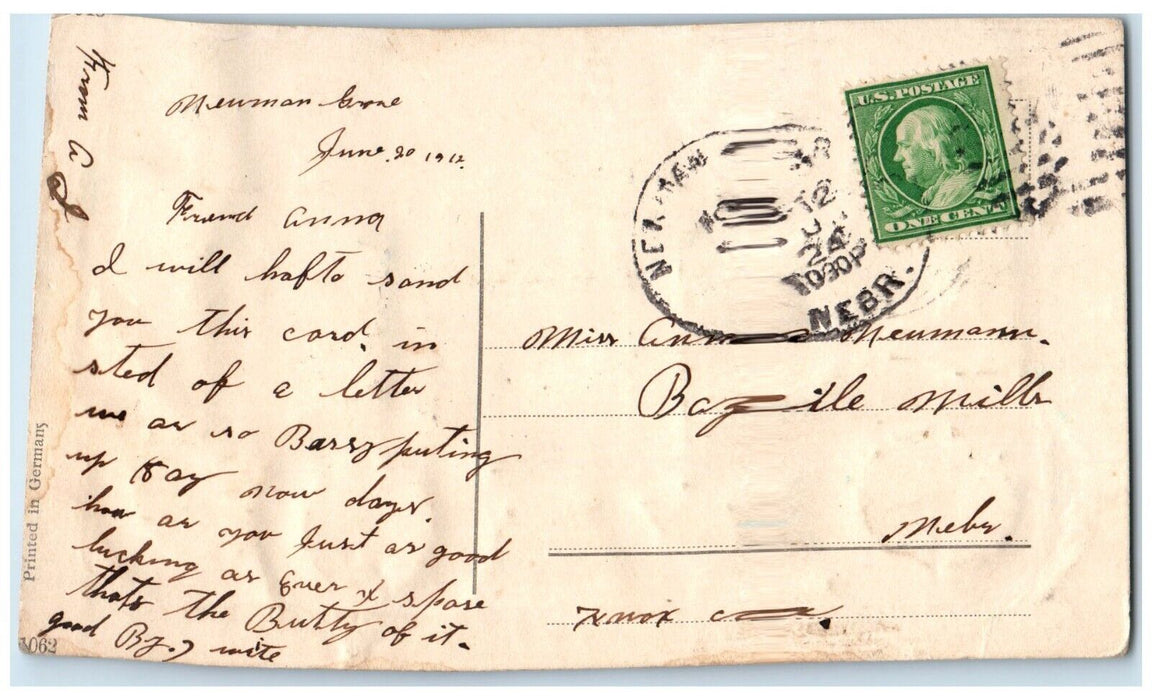 From A J
Newman Grove
June. 20 1912.
Friend Anna
I will hafto sand
you this card. in
sted of a letter
we ar so Bassy puting
up Hay now days.
how ar you Just as good
lucking as Ever I spose
thats the Butty of it.
good By. write
Printed in Germany
1062
U.S. POSTAGE
ONE CENT
12
24
1030P
NEBR.
Miss Anna Neumann.
Bazile Mills
Nebr.
Knox co.